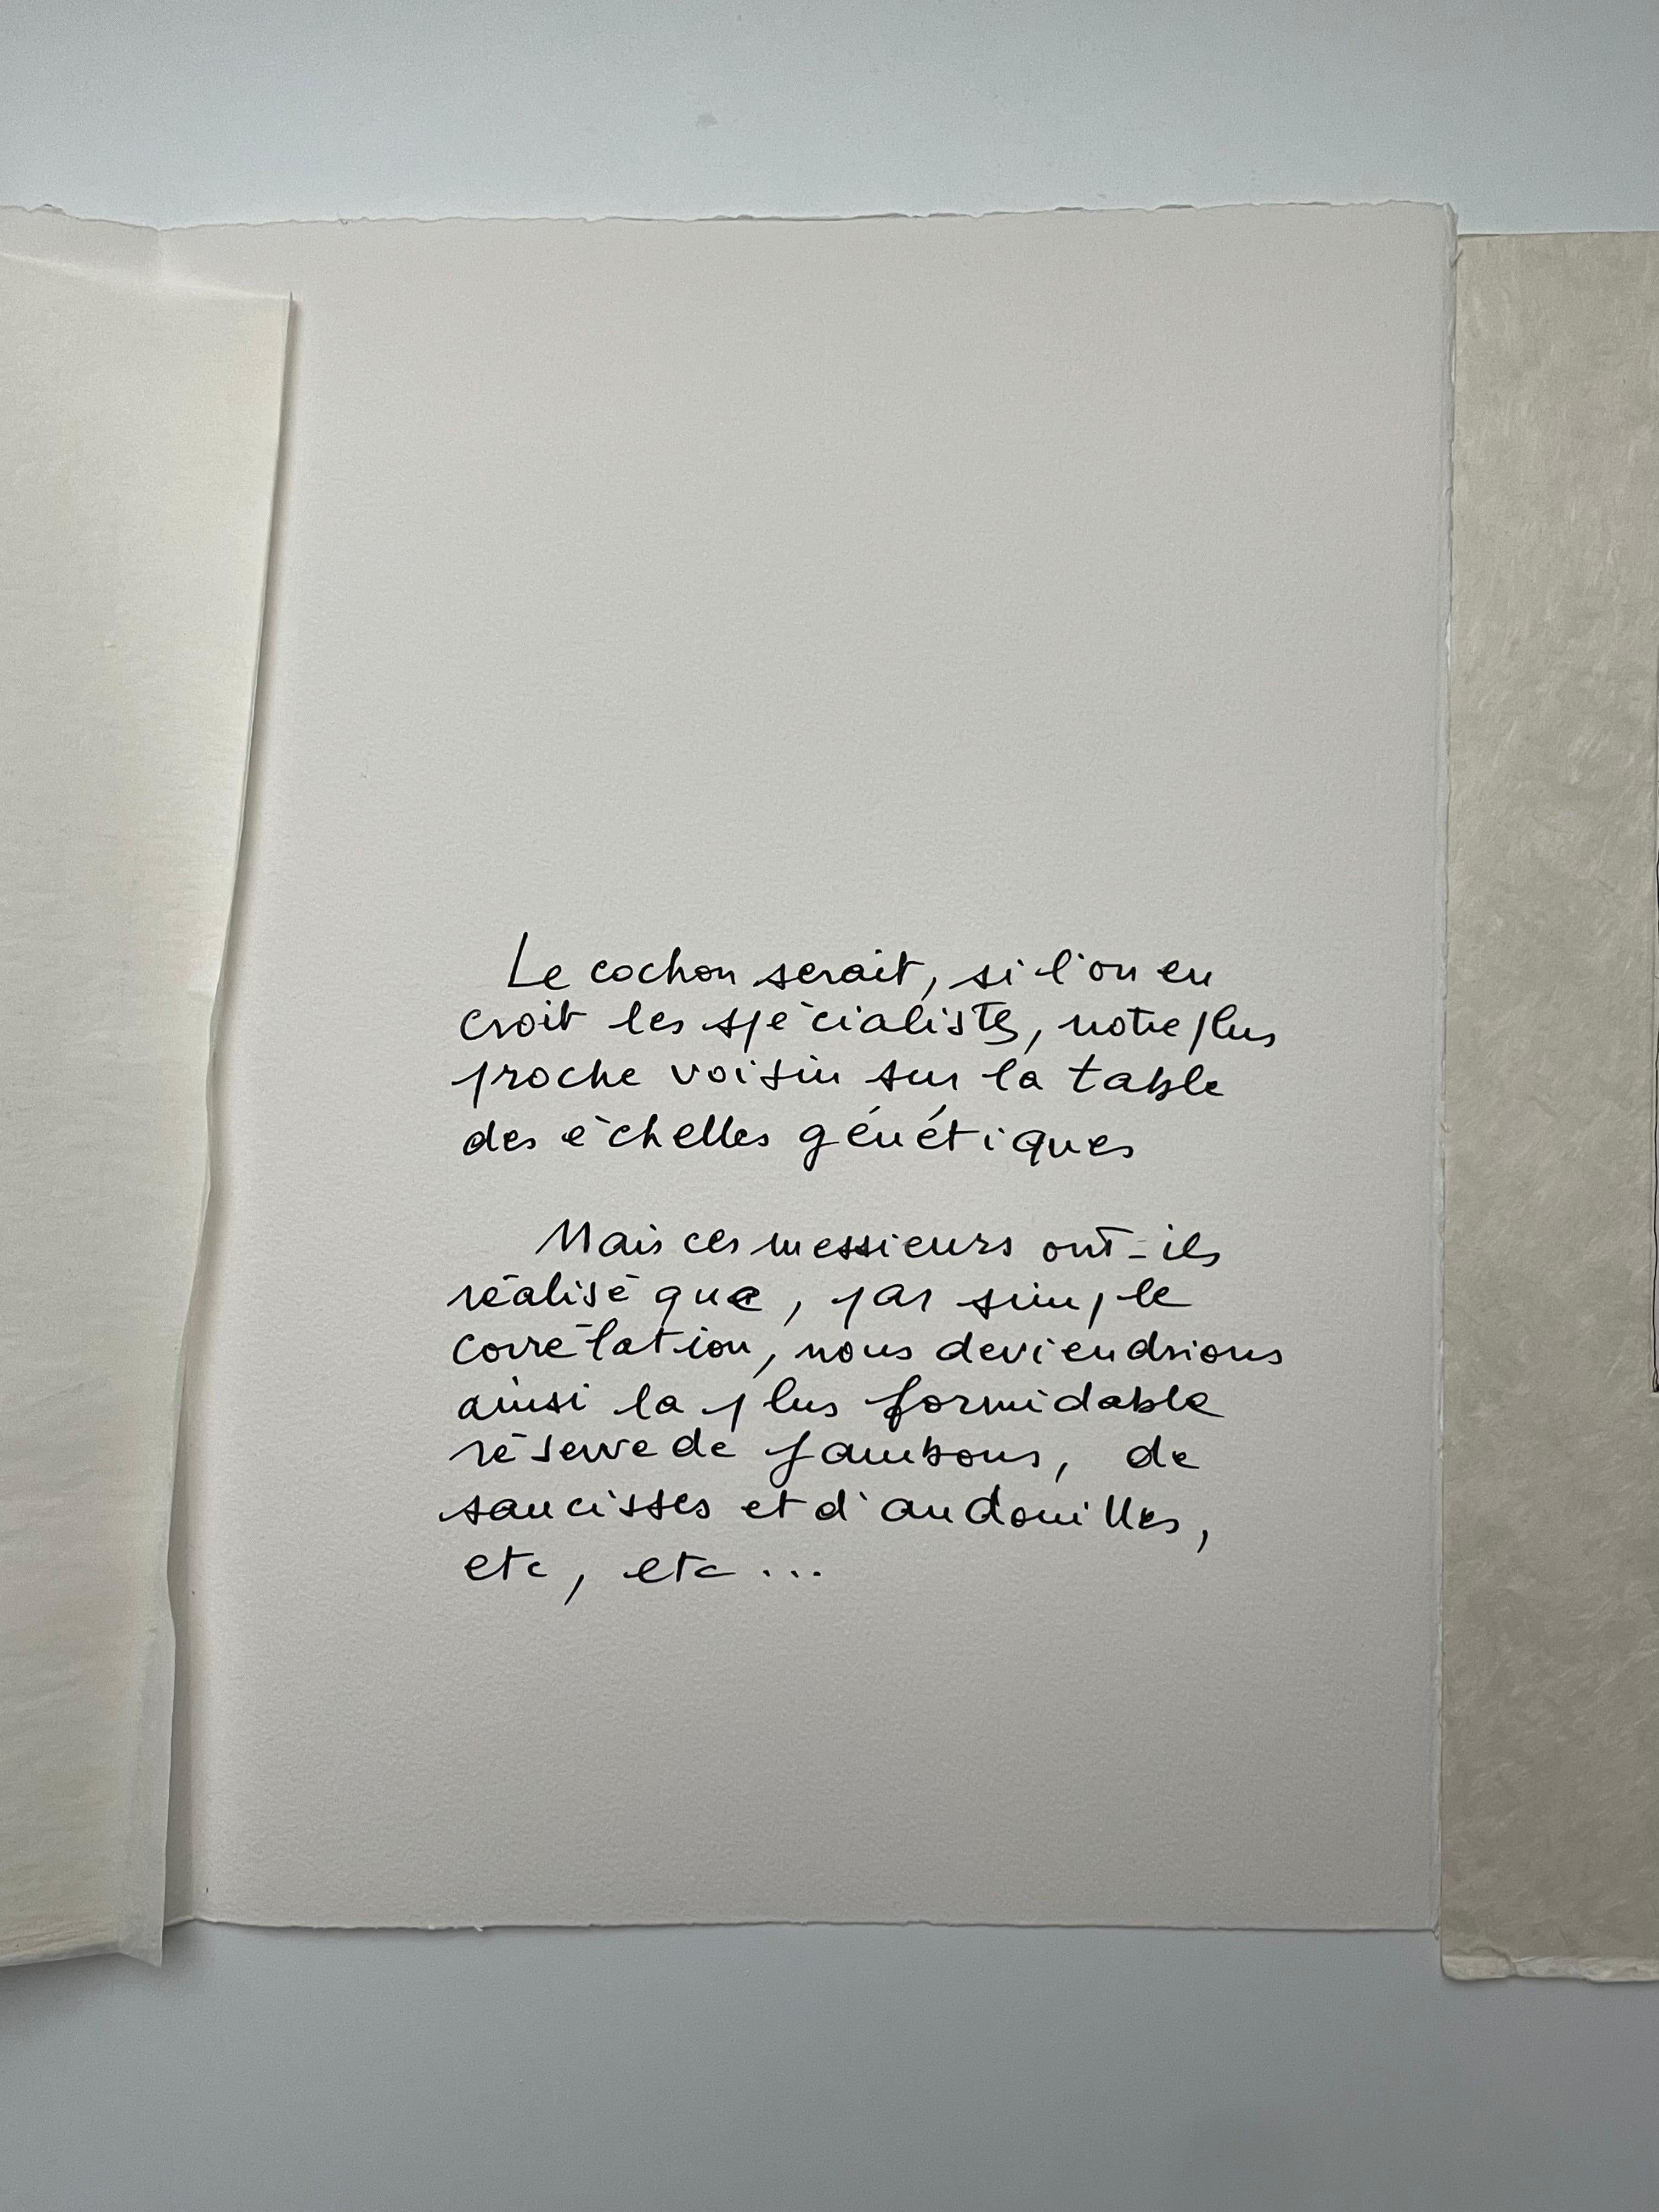 Le cochon serait, si l'on en
croit les spécialistes, notre plus
proche voisin sur la table
des échelles génétiques
Mais ces messieurs ont-ils
réalisé que, par simple
corrélation, nous deviendrions
ainsi la plus formidable
réserve de jambons, de
saucisses et d'andouilles,
etc, etc...